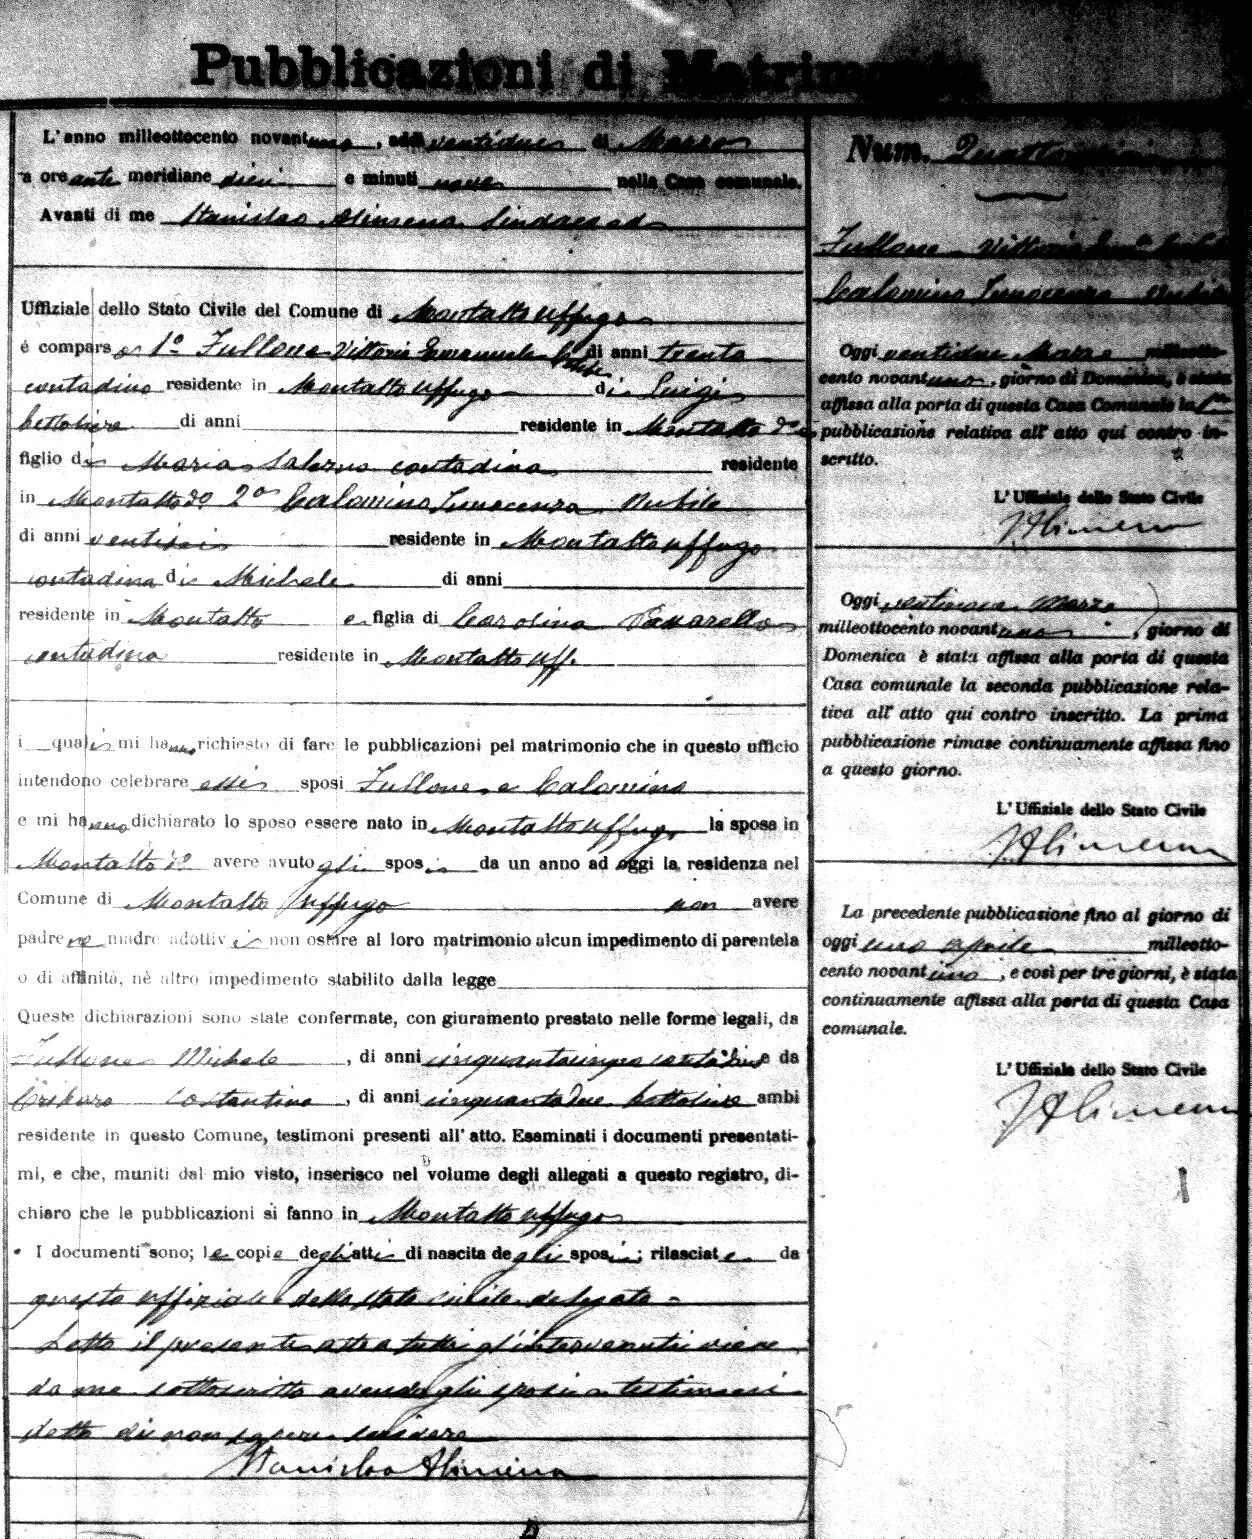 Pubblicazioni di Matrimonio
L'anno milleottocento novantuno, addì ventidue di Marzo
a ore anti meridiane dieci e minuti nove nella Casa comunale.
Avanti di me Stanislao Alimena Sindaco ed
Uffiziale dello Stato Civile del Comune di Montalto Uffugo
è compars 1º Fullone Vittorio Emanuele di anni trenta
contadino residente in Montalto Uffugo di Luigi
bettoliere di anni residente in Montalto
figlio di Maria Salerno contadina residente
in Montalto dº 2º Calomino Innocenza Nubile
di anni ventisei residente in Montalto Uffugo
contadina di Michele di anni
residente in Montalto e figlia di Carolina
contadina residente in Montalto Uff.
i quali mi hanno richiesto di fare le pubblicazioni pel matrimonio che in questo ufficio
intendono celebrare essi sposi Fullone e Calomino
e mi hanno dichiarato lo sposo essere nato in Montalto Uffugo la sposa in
Montalto dº avere avuto gli sposi da un anno ad oggi la residenza nel
Comune di Montalto Uffugo non avere
padre ne madre adottivi non ostare al loro matrimonio alcun impedimento di parentela
o di affinità, nè altro impedimento stabilito dalla legge
Queste dichiarazioni sono state confermate, con giuramento prestato nelle forme legali, da
Fullone Michele, di anni cinquantacinque contadino e da
Costantino, di anni cinquantadue bettoliere ambi
residente in questo Comune, testimoni presenti all'atto. Esaminati i documenti presentati-
mi, e che, muniti dal mio visto, inserisco nel volume degli allegati a questo registro, di-
chiaro che le pubblicazioni si fanno in Montalto Uffugo
I documenti sono; le copie degli atti di nascita degli sposi; rilasciate da
questo uffiziale dello stato civile delegato =
Letto il presente atto a tutti gl'intervenuti viene
da me sottoscritto avendo gli sposi e testimoni
detto di non sapere scrivere
Stanislao Alimena
Num.
Fullone Vittorio
Calomino Innocenza Nubile
Oggi ventidue Marzo milleotto-
cento novantuno, giorno di Domenica, è stata
affissa alla porta di questa Casa Comunale la
pubblicazione relativa all'atto qui contro in-
scritto.
L'Uffiziale dello Stato Civile
S. Alimena
Oggi ventinove Marzo
milleottocento novantuno, giorno di
Domenica è stata affissa alla porta di questa
Casa comunale la seconda pubblicazione rela-
tiva all'atto qui contro inscritto. La prima
pubblicazione rimase continuamente affissa fino
a questo giorno.
L'Uffiziale dello Stato Civile
S. Alimena
La precedente pubblicazione fino al giorno di
oggi uno aprile milleotto-
cento novantuno, e così per tre giorni, è stata
continuamente affissa alla porta di questa Casa
comunale.
L'Uffiziale dello Stato Civile
S. Alimena